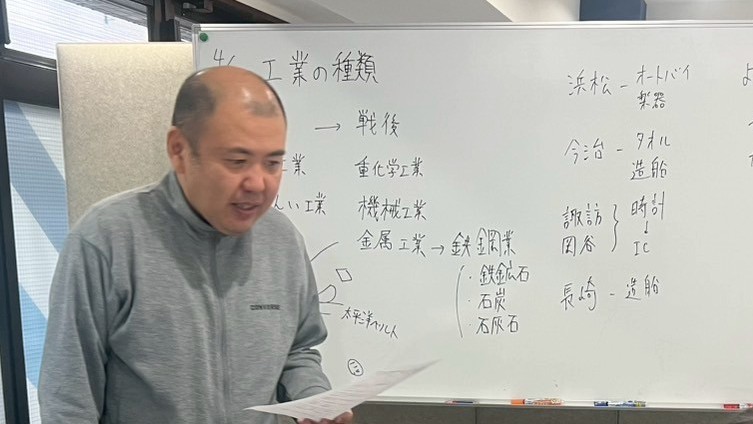 4/
工業の種類
→ 戦後
業 重化学工業
い工業 機械工業
金属工業→鉄鋼業
・鉄鉱石
・石炭
・石灰石
太平洋ベルト
浜松-オートバイ
楽器
今治-タオル
造船
諏訪 時計
岡谷 ↓
IC
長崎-造船
よ